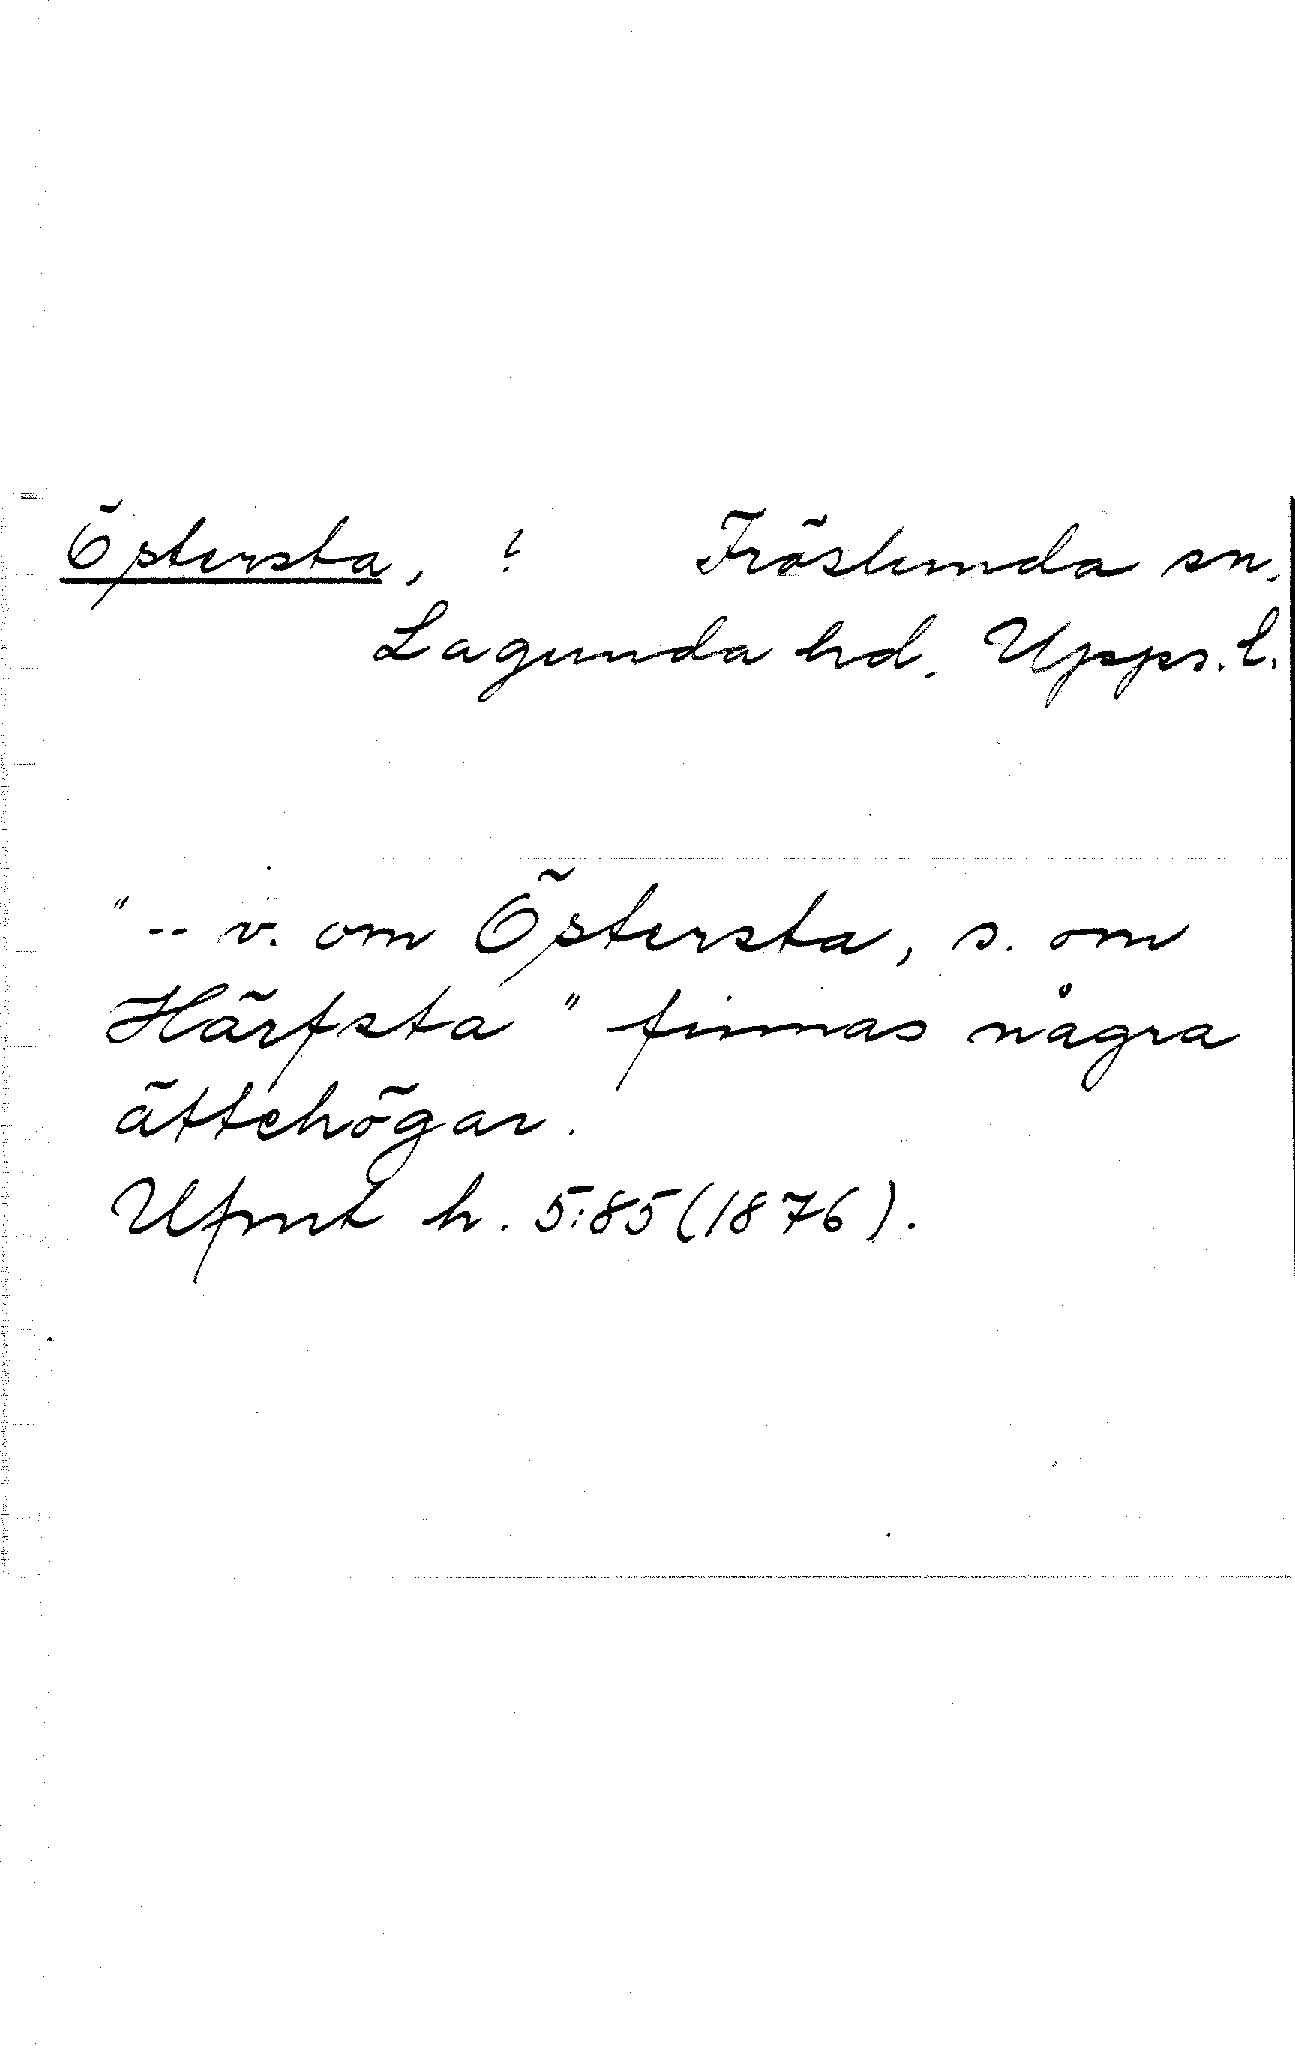 Östersta, ? Fröslunda sn.
Lagunda hd. Upps. l.
"-- v. om Östersta, s. om
Härfsta" finnas några
ättehögar.
Ufmt h. 5:85 (1876).